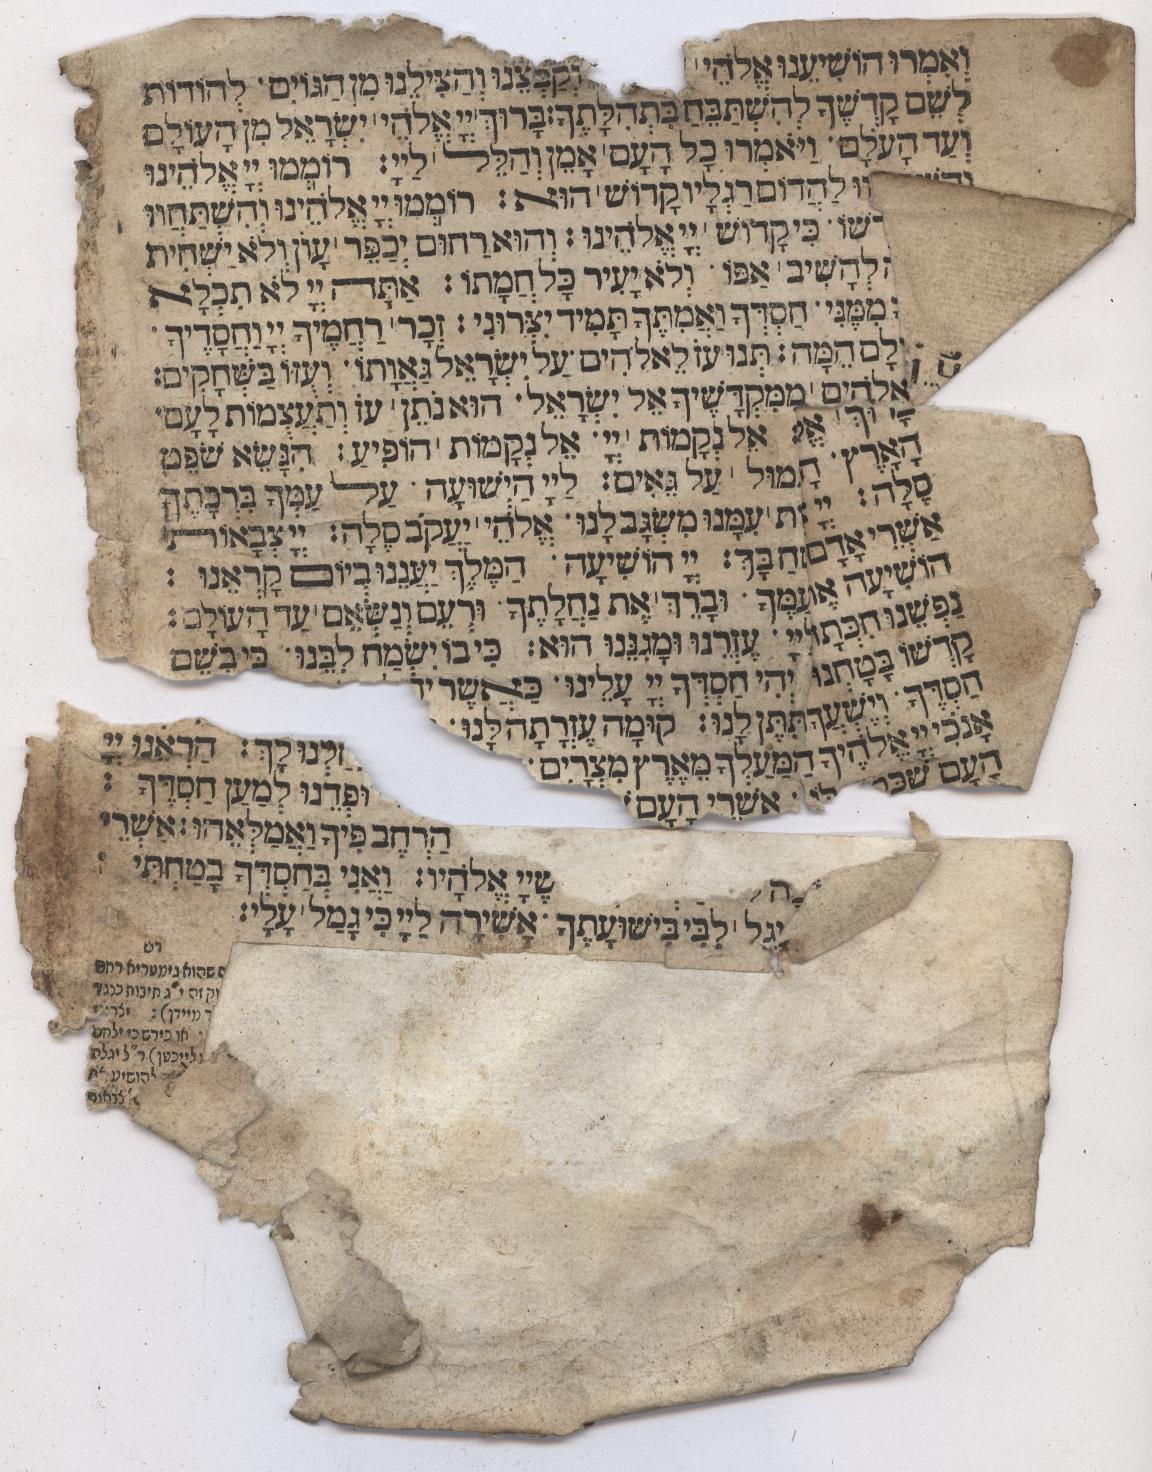 וְאִמְרוּ הוֹשִׁיעֵנוּ אֱלֹהֵי וְקַבְּצֵנוּ וְהַצִּילֵנוּ מִן הַגּוֹיִם · לְהוֹדוֹת
לְשֵׁם קָדְשֶׁךָ לְהִשְׁתַּבֵּחַ בִּתְהִלָּתֶךָ: בָּרוּךְ יְיָ אֱלֹהֵי יִשְׂרָאֵל מִן הָעוֹלָם
וְעַד הָעֹלָם · וַיֹּאמְרוּ כָל הָעָם אָמֵן וְהַלֵּל לַייָ: רוֹמְמוּ יְיָ אֱלֹהֵינוּ
לַהֲדוֹם רַגְלָיו קָדוֹשׁ הוּא: רוֹמְמוּ יְיָ אֱלֹהֵינוּ וְהִשְׁתַּחֲווּ
דְשׁוֹ · כִּי קָדוֹשׁ יְיָ אֱלֹהֵינוּ: וְהוּא רַחוּם יְכַפֵּר עָוֹן וְלֹא יַשְׁחִית
לְהָשִׁיב אַפּוֹ · וְלֹא יָעִיר כָּל חֲמָתוֹ: אַתָּה יְיָ לֹא תִכְלָא
מִמֶּנִּי · חַסְדְּךָ וַאֲמִתְּךָ תָּמִיד יִצְּרוּנִי: זְכֹר רַחֲמֶיךָ יְיָ וַחֲסָדֶיךָ ·
וֹלָם הֵמָּה: תְּנוּ עוֹז לֵאלֹהִים עַל יִשְׂרָאֵל גַּאֲוָתוֹ · וְעֻזּוֹ בַּשְּׁחָקִים:
אֱלֹהִים מִמִּקְדָּשֶׁיךָ אֵל יִשְׂרָאֵל · הוּא נֹתֵן עוֹז וְתַעֲצֻמוֹת לָעָם ·
אֵל נְקָמוֹת יְיָ · אֵל נְקָמוֹת הוֹפִיעַ: הִנָּשֵׂא שֹׁפֵט
הָאָרֶץ · גְמוּל עַל גֵּאִים: לַייָ הַיְשׁוּעָה · עַל עַמְּךָ בִרְכָתֶךָ
סֶלָה: יְיָ עִמָּנוּ מִשְׂגָּב לָנוּ · אֱלֹהֵי יַעֲקֹב סֶלָה: יְיָ צְבָאוֹת
אַשְׁרֵי אָדָם בָּךְ: יְיָ הוֹשִׁיעָה · הַמֶּלֶךְ יַעֲנֵנוּ בְיוֹם קָרְאֵנוּ:
הוֹשִׁיעָה עַמֶּךָ · וּבָרֵךְ אֶת נַחֲלָתֶךָ · וּרְעֵם וְנַשְּׂאֵם עַד הָעוֹלָם:
נַפְשֵׁנוּ חִכְּתָה לַייָ · עֶזְרֵנוּ וּמָגִנֵּנוּ הוּא: כִּי בוֹ יִשְׂמַח לִבֵּנוּ · כִּי בְשֵׁם
קָדְשׁוֹ בָטָחְנוּ יְהִי חַסְדְּךָ יְיָ עָלֵינוּ · כַּאֲשֶׁר יִ
חַסְדֶּךָ · וְיֶשְׁעֲךָ תִּתֶּן לָנוּ: קוּמָה עֶזְרָתָה לָּנוּ ·
חַלְנוּ לָךְ: הַרְאֵנוּ יְיָ
וּפְדֵנוּ לְמַעַן חַסְדֶּךָ:
אָנֹכִי יְיָ אֱלֹהֶיךָ הַמַּעַלְךָ מֵאֶרֶץ מִצְרַיִם ·
הַרְחֶב פִּיךָ וַאֲמַלְאֵהוּ: אַשְׁרֵי
הָעָם שֶׁכָּכָה לּוֹ · אַשְׁרֵי הָעָם
שֶׁיְיָ אֱלֹהָיו: וַאֲנִי בְּחַסְדְּךָ בָטַחְתִּי
יָגֵל לִבִּי בִּישׁוּעָתֶךָ · אָשִׁירָה לַייָ כִּי גָמַל עָלָי:
רש
שהוא גימטריא רחם
זה י"ג תיבות כנגד
מיידן):
או פירש כי ילחם
לייכטן) ר"ל יגלה
להושיע